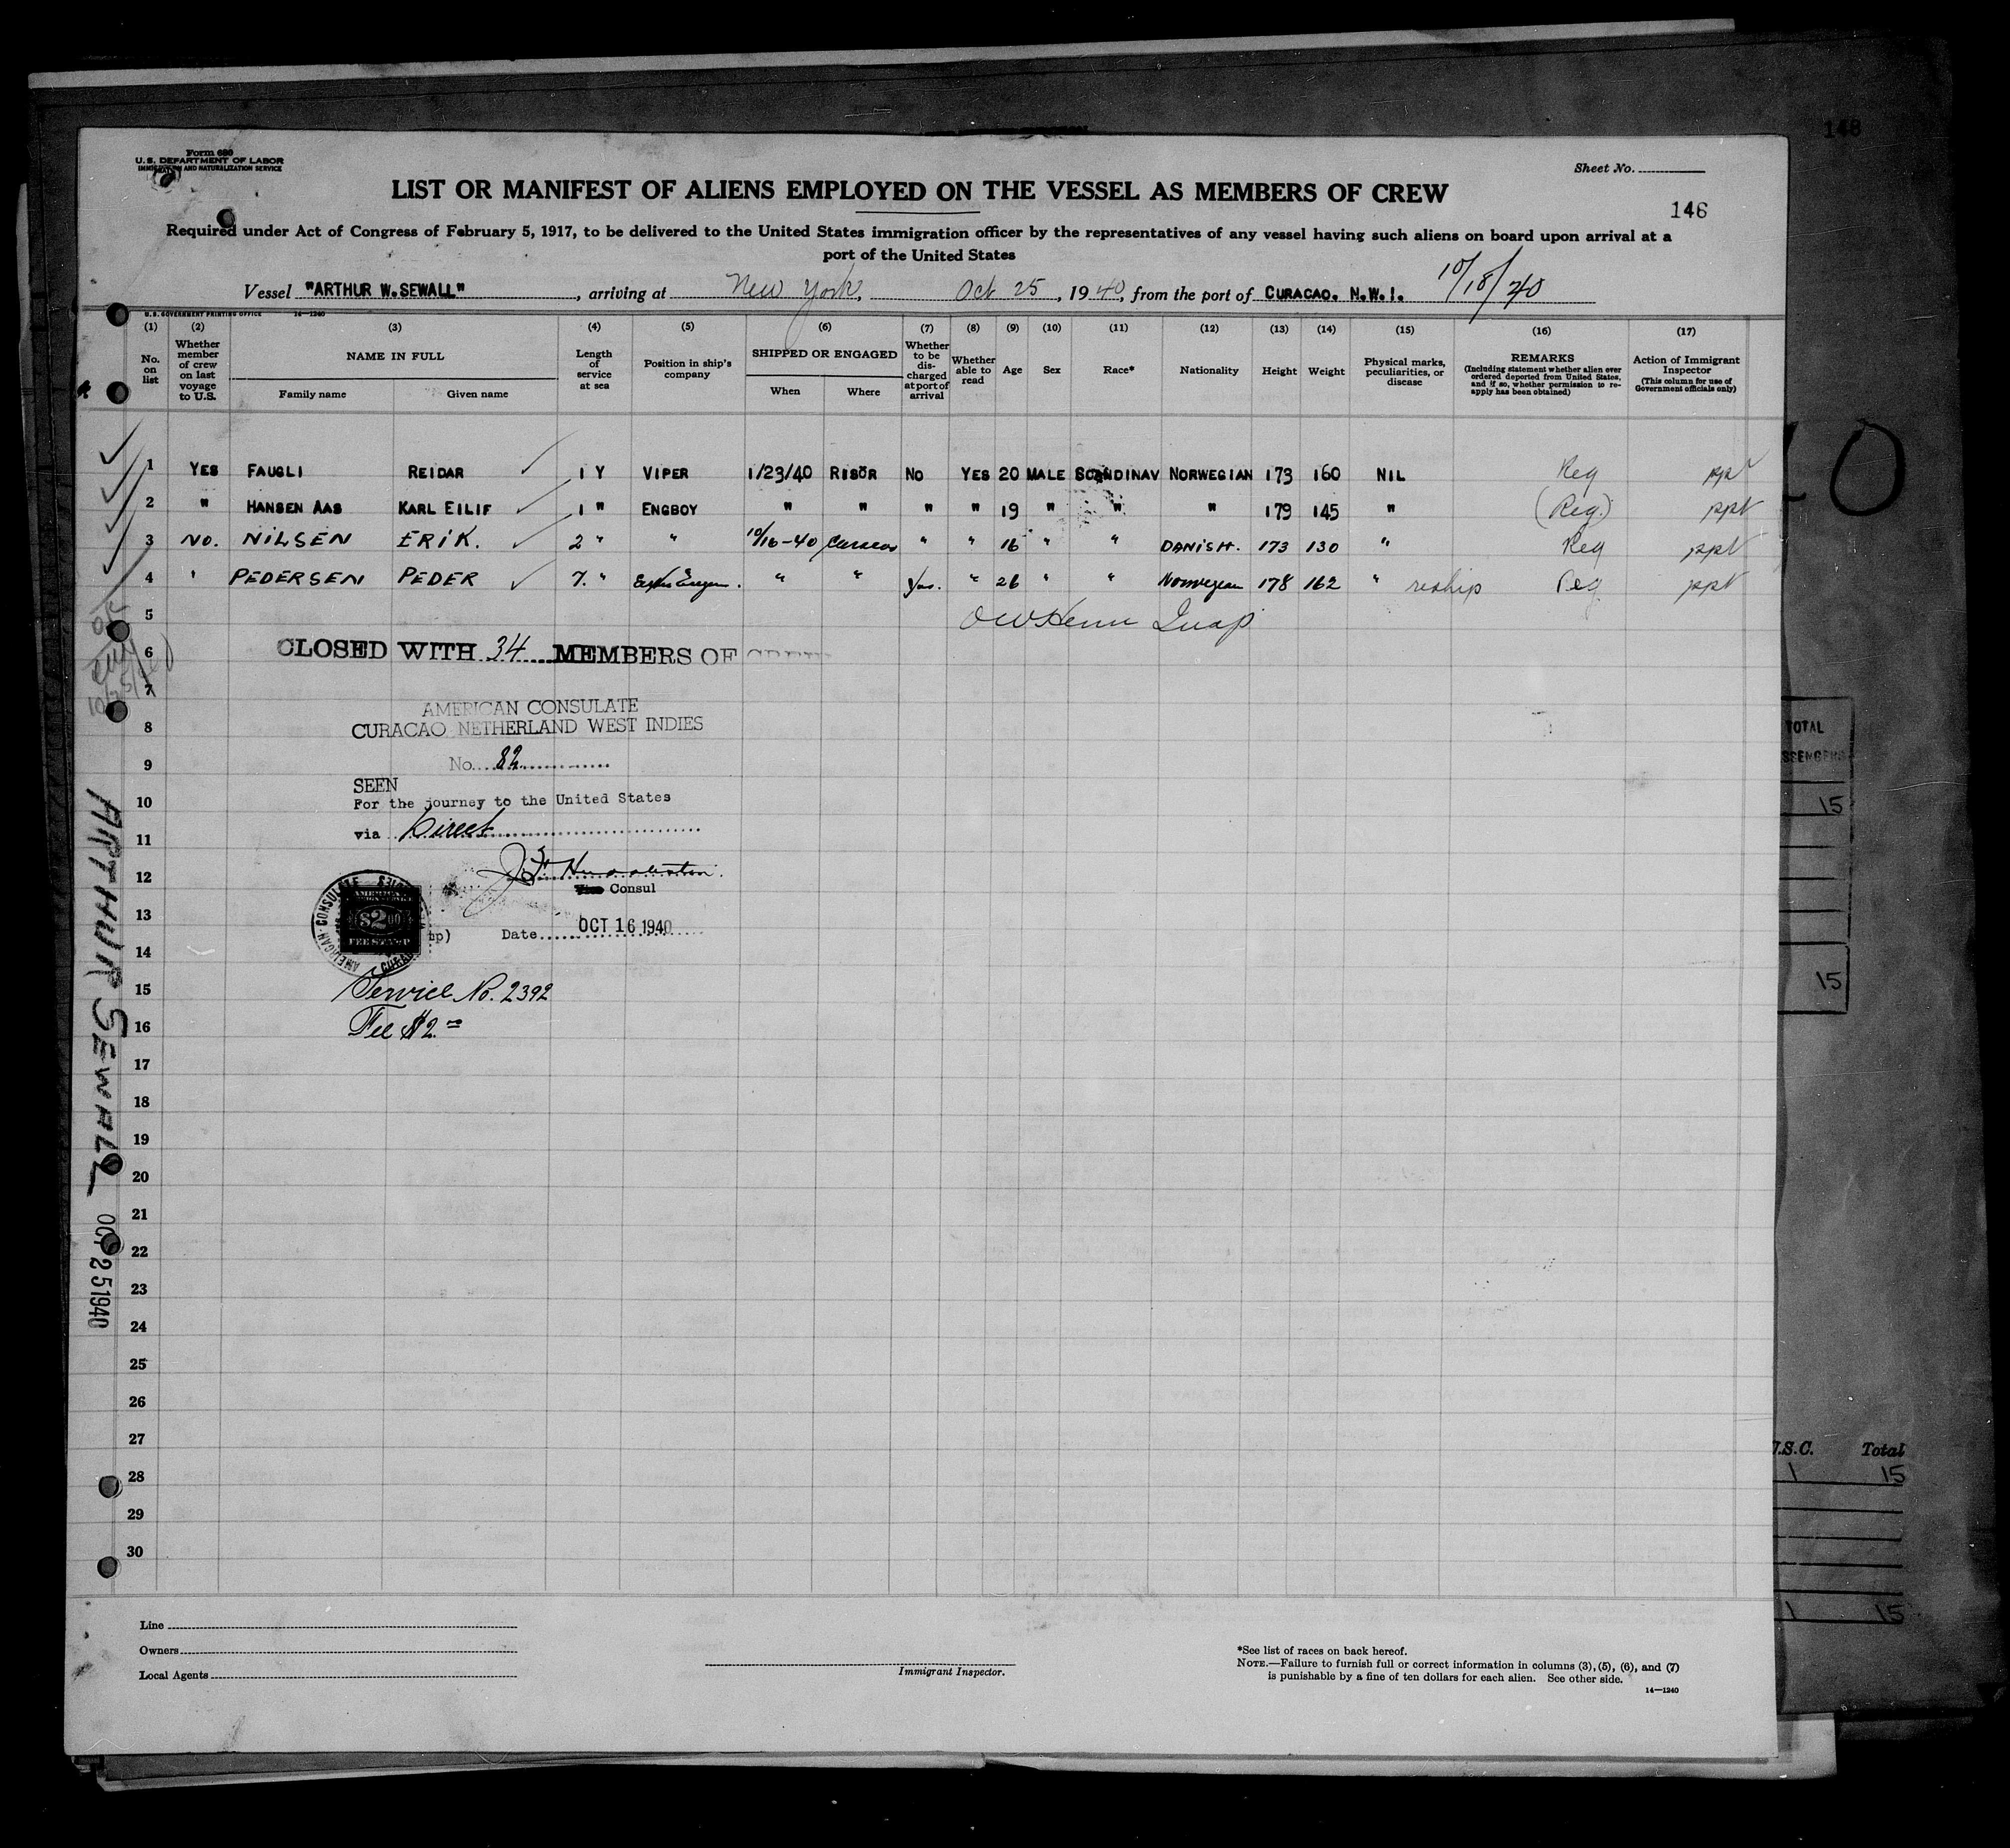 148
Form 680
U.S. DEPARTMENT OF LABOR
IMMIGRATION AND NATURALIZATION SERVICE
Sheet No.
LIST OR MANIFEST OF ALIENS EMPLOYED ON THE VESSEL AS MEMBERS OF CREW
146
Required under Act of Congress of February 5, 1917, to be delivered to the United States immigration officer by the representatives of any vessel having such aliens on board upon arrival at a
port of the United States
Vessel "ARTHUR W.SEWALL", arriving at New York, Oct 25, 1940, from the port of CURACAO. N.W.I. 10/18/40
U.S. GOVERNMENT PRINTING OFFICE 14—1240
(1) (2) (3) (4) (5) (6) (7) (8) (9) (10) (11) (12) (13) (14) (15) (16) (17)
No. on list
Whether member of crew on last voyage to U.S.
NAME IN FULL
Family name
Given name
Length of service at sea
Position in ship's company
SHIPPED OR ENGAGED
When
Where
Whether to be discharged at port of arrival
Whether able to read
Age
Sex
Race*
Nationality
Height
Weight
Physical marks, peculiarities, or disease
REMARKS
(Including statement whether alien ever ordered deported from United States, and if so, whether permission to reapply has been obtained)
Action of Immigrant Inspector
(This column for use of Government officials only)
1 YES FAUGLI REIDAR 1 Y VIPER 1/23/40 RISÖR NO YES 20 MALE SCANDINAV NORWEGIAN 173 160 NIL Reg ppt
2 " HANSEN AAS KARL EILIF 1 " ENGBOY " " " " 19 " " " 179 145 " (Reg.) ppt
3 NO. NILSEN ERIK. 2 " " 10/16-40 Curacao " " 16 " " DANISH. 173 130 " Reg ppt
4 " PEDERSEN PEDER 7. " " " Yes. " 26 " " Norwegian 178 162 " reship Reg ppt
5
6 CLOSED WITH 34 MEMBERS OF CREW
7
AMERICAN CONSULATE
8 CURACAO NETHERLAND WEST INDIES
9 No. 82
SEEN
10 For the journey to the United States
11 via Direct
12
Vice Consul
13 (Fee Stamp) Date OCT 16 1940
AMERICAN CONSULATE
$2.00
FEE STAMP
14
15 Service No. 2392
16 Fee $2.00
17
18
19
20
21
22
23
24
25
26
27
28
29
30
ARTHUR SEWALL OCT 25 1940
Line
Owners
Local Agents
Immigrant Inspector.
*See list of races on back hereof.
NOTE.—Failure to furnish full or correct information in columns (3), (5), (6), and (7)
is punishable by a fine of ten dollars for each alien. See other side.
14—1240
TOTAL
15
15
Total
1 15
1 15